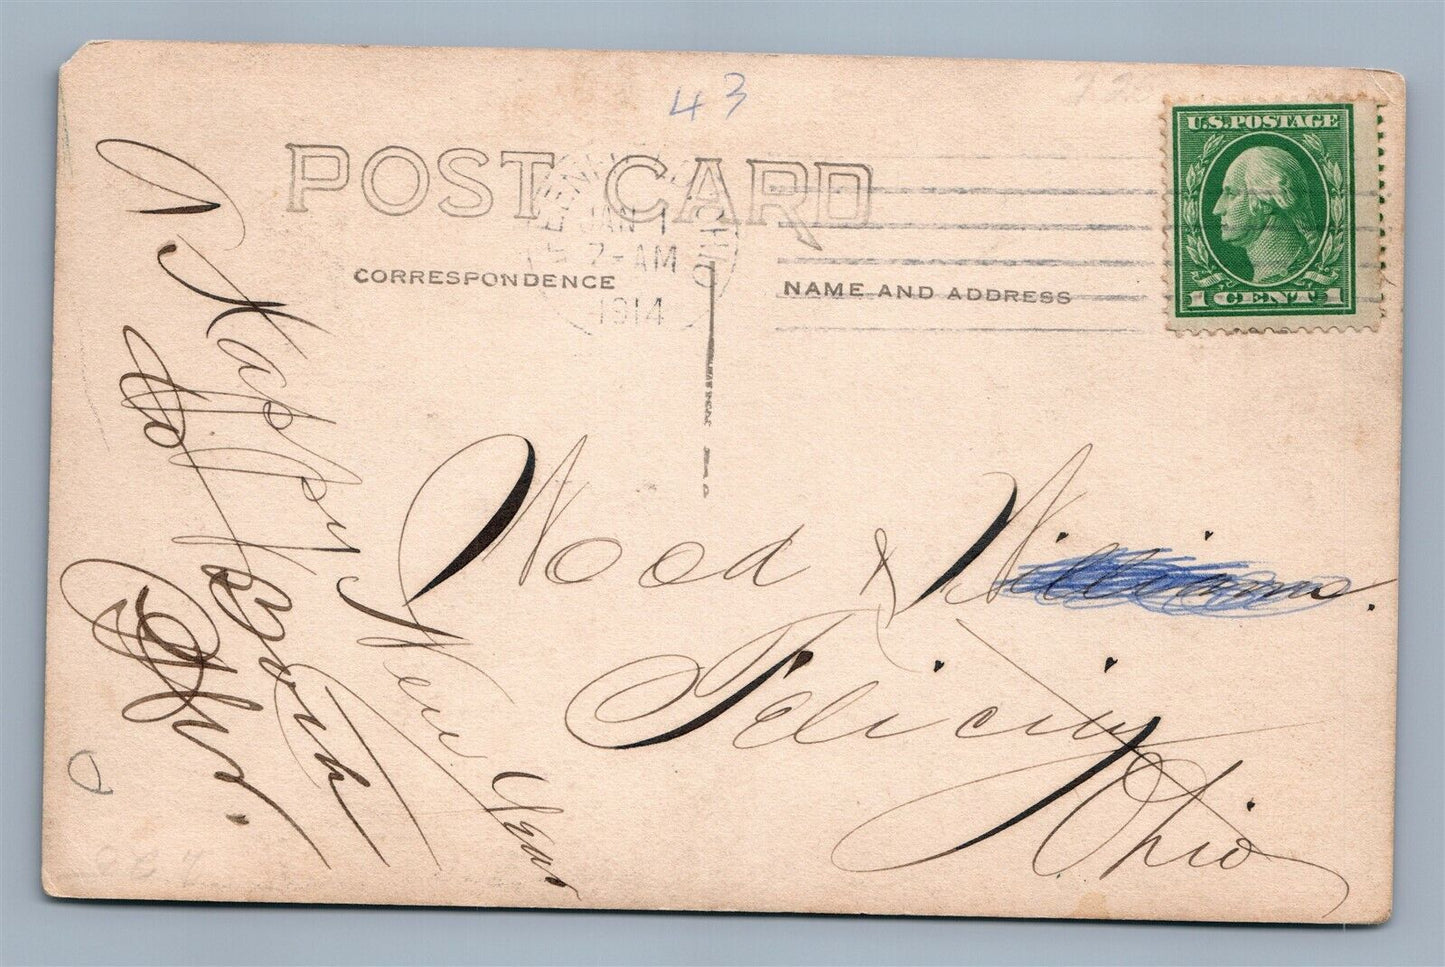 43
POST CARD
U.S. POSTAGE
JAN 1
7-AM
OHIO
1914
CORRESPONDENCE
NAME AND ADDRESS
1 CENT 1
A Happy New Year
to Both
Wood & Williams.
Felicity
Ohio